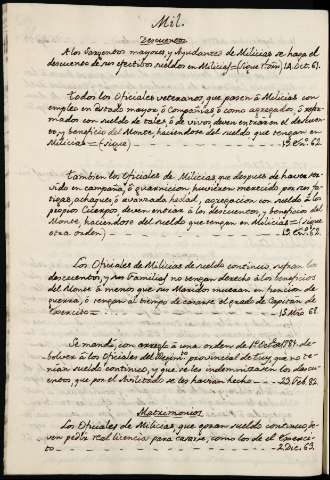 Mil.
Descuentos
A los Sargentos mayores, y Ayudantes de Milicias se haga el
descuento de sus efectivos sueldos en Milicias = (sigue otrâ) 14. Oct. 61.
Todos los Oficiales veteranos que pasen á Milicias con
empleo en estado mayor, ó Compañias ó como agregados, ó refor-
mados con sueldo de tales, ó de vivos deven entrar en el descuen-
to, y beneficio del Monte, haciendose del sueldo que tengan en
Milicias = (sigue) 19. En.º 62.
Tambien los Oficiales de Milicias que despues de haver ser-
vido en campaña, ó guarnicion huvieren merecido por sus fa-
tigas, achaques, ó avanzada hedad, agregacion con sueldo á los
propios Cuerpos, deven entrar á los descuentos, y beneficios del
Monte, haciendose del sueldo que tengan en Milicias = (sigue
otra orden) 19. En.º 62.
Los Oficiales de Milicias de sueldo continuo sufran los
descuentos, y sus familias no tengan derecho á los beneficios
del Monte á menos que sus Maridos mueran en funcion de
guerra, ó tengan al tiempo de casarse el grado de Capitan de
Exercito = 15. Mzo. 68.
Se manda, con arreglo á una orden de 1º Oct.e 1781. de-
bolver á los Oficiales del Regim.to provincial de Tuy, que no te-
nian sueldo continuo, y que se les indemnizasen los descuen-
tos, que por el havilitado se les havian hecho 23. Feb. 82.
Matrimonios
Los Oficiales de Milicias que gozan sueldo continuo, de-
ven pedir real licencia para casarse, como los de el Exerci-
to 2. Dic. 63.